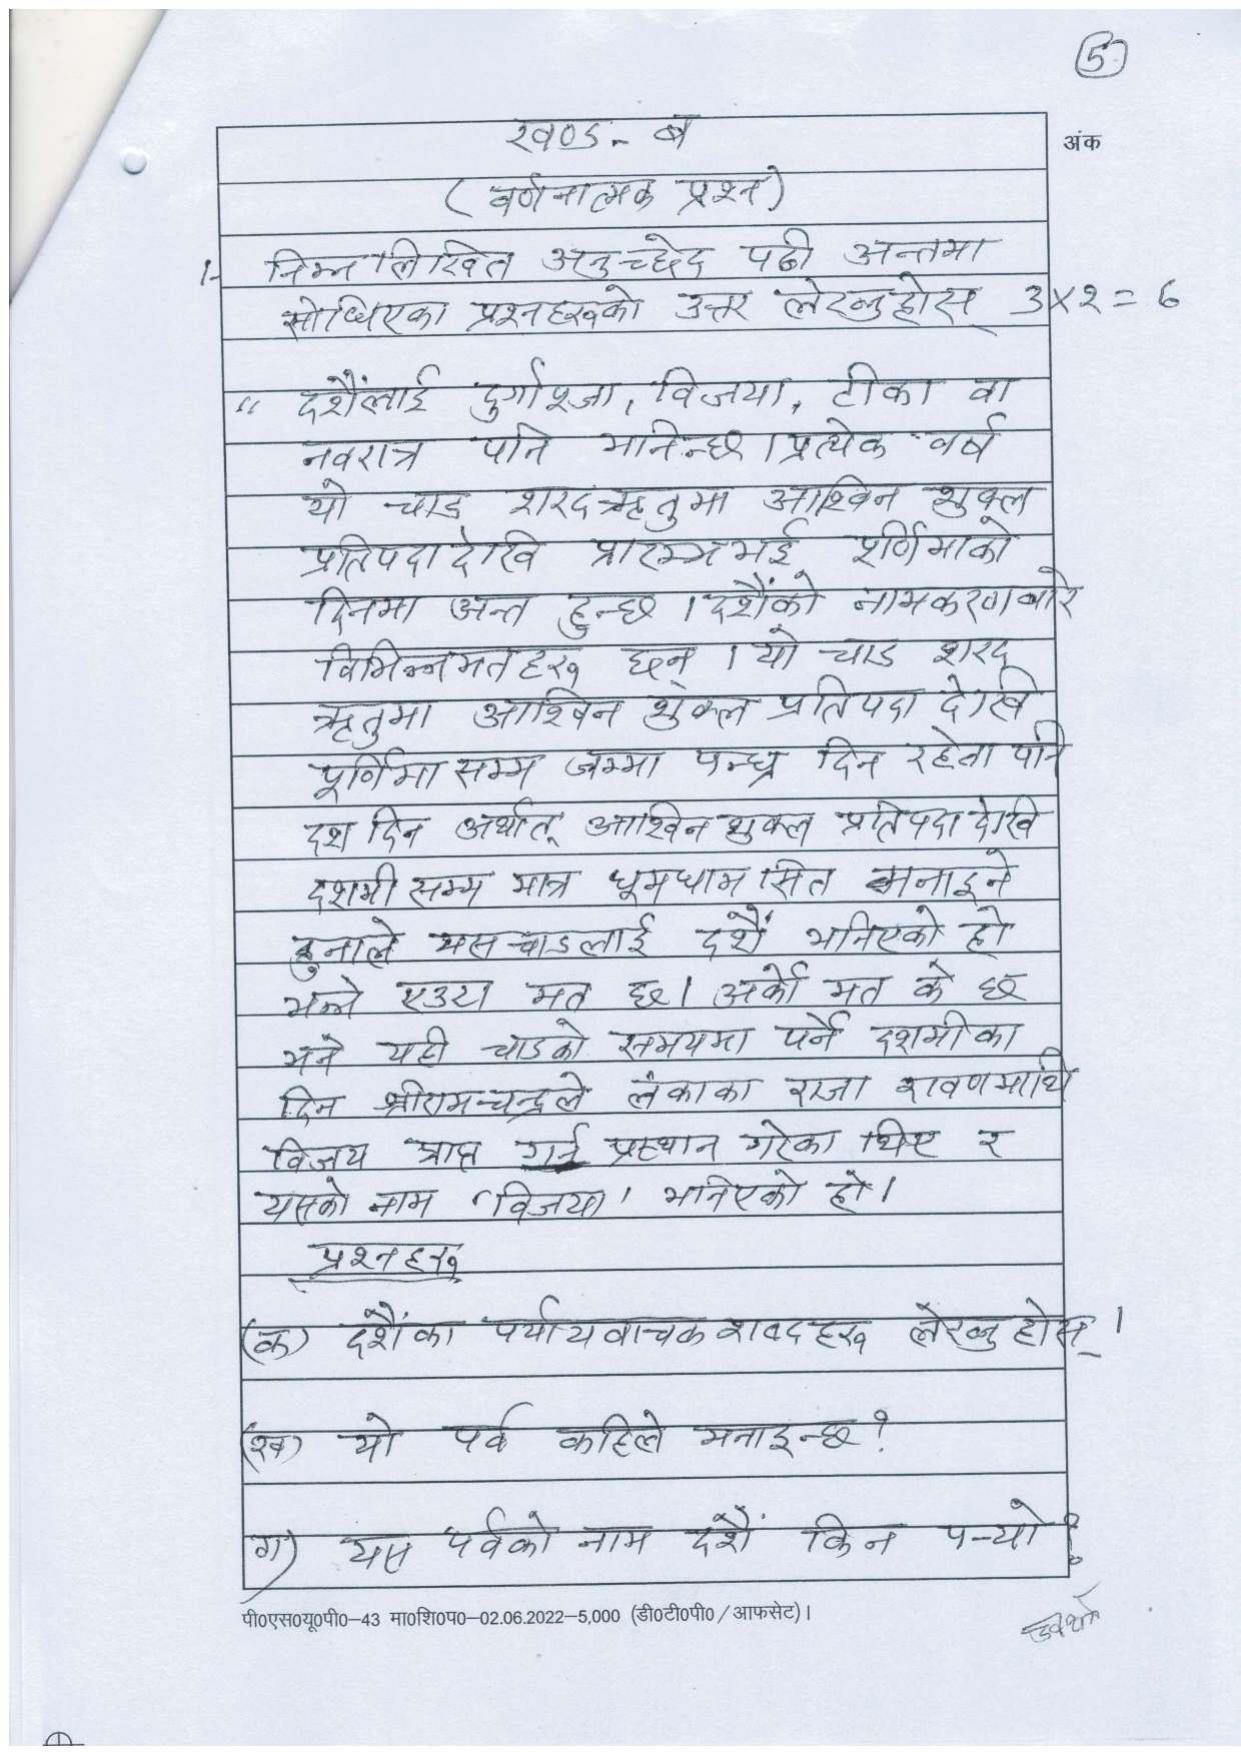 5
खण्ड - ब
अंक
(वर्णनात्मक प्रश्न)
1- निम्नलिखित अनुच्छेद पढी अन्तमा
सोधिएका प्रश्नहरूको उत्तर लेख्नुहोस् 3×2=6
“ दशैंलाई दुर्गापूजा, विजया, टीका वा
नवरात्र पनि मानिन्छ। प्रत्येक वर्ष
यो चाड शरदऋतुमा आश्विन शुक्ल
प्रतिपदा देखि प्रारम्भ भई पूर्णिमाको
दिनमा अन्त हुन्छ। दशैंको नामकरण बारे
विभिन्न मतहरू छन्। यो चाड शरद्
ऋतुमा आश्विन शुक्ल प्रतिपदा देखि
पूर्णिमा सम्म जम्मा पन्ध्र दिन रहेता पनि
दश दिन अर्थात् आश्विन शुक्ल प्रतिपदा देखि
दशमी सम्म मात्र धूमधाम सित मनाइने
हुनाले यस चाडलाई दशैं भनिएको हो
भन्ने एउटा मत छ। अर्को मत के छ
भने यही चाडको समयमा पर्ने दशमीका
दिन श्रीरामचन्द्रले लंकाका राजा रावणमाथि
विजय प्राप्त गर्न प्रस्थान गरेका थिए र
यसको नाम 'विजया' भनिएको हो।
प्रश्नहरू
(क) दशैंका पर्यायवाचक शब्दहरू लेख्नुहोस्।
(ख) यो पर्व कहिले मनाइन्छ?
ग) यस पर्वको नाम दशैं किन पऱ्यो?
पी०एस०यू०पी०–43 मा०शि०प०–02.06.2022–5,000 (डी०टी०पी०/आफसेट)।